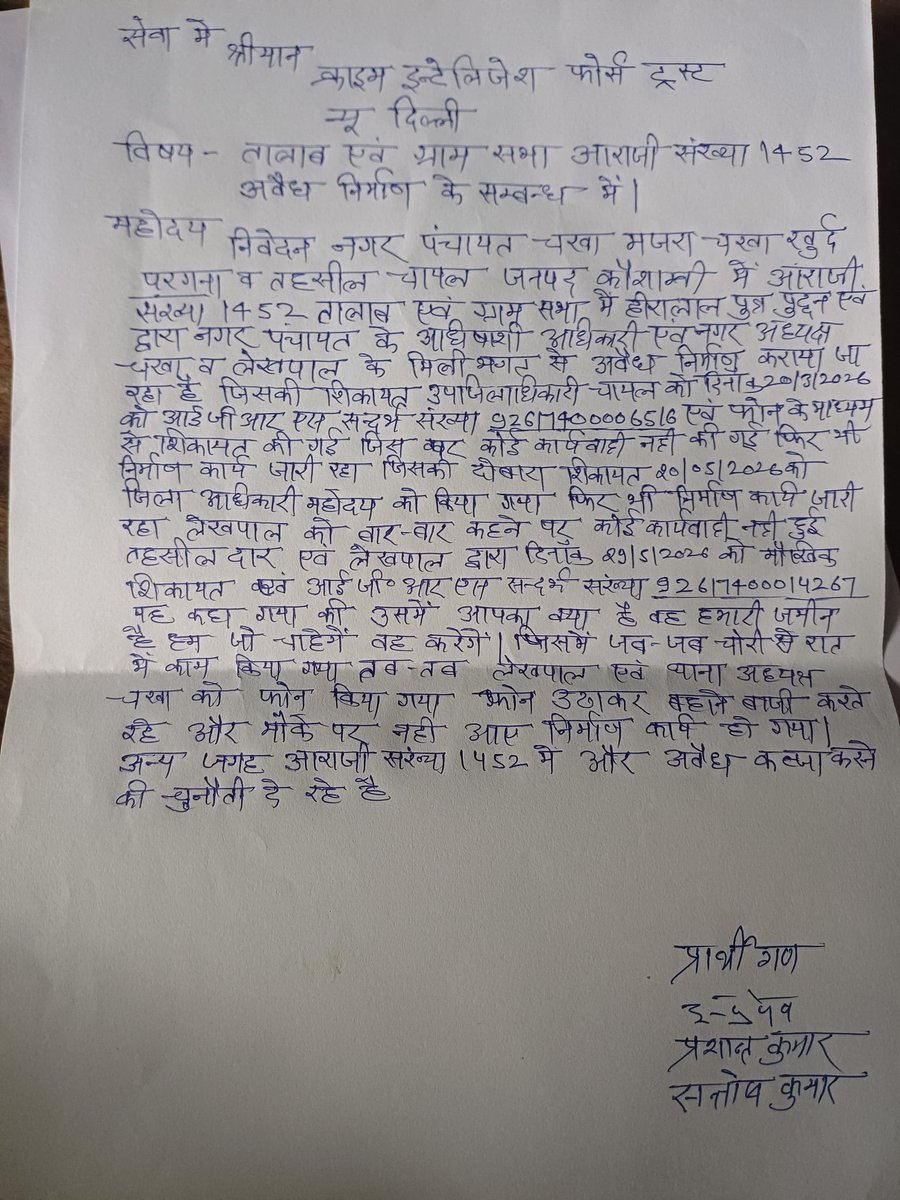 सेवा मे
श्रीमान
क्राइम इन्टेलिजेश फोर्स ट्रस्ट
न्यू दिल्ली
विषय - तालाब एवं ग्राम सभा आराजी संख्या 1452
अवैध निर्माण के सम्बन्ध में।
महोदय
निवेदन नगर पंचायत चरवा मजरा चरवा खुर्द
परगना व तहसील चायल जनपद कौशाम्बी में आराजी
संख्या 1452 तालाब एवं ग्राम सभा में हीरालाल पुत्र पुद्दन एवं
द्वारा नगर पंचायत के अधिषाशी अधिकारी एवं नगर अध्यक्ष
चरवा व लेखपाल के मिली भगत से अवैध निर्माण कराया जा
रहा है जिसकी शिकायत उपजिलाधिकारी चायल को दिनांक 20/3/2026
को आई जी आर एस सन्दर्भ संख्या 92617400006516 एवं फोन के माध्यम
से शिकायत की गई जिस पर कोई कार्यवाही नही की गई फिर भी
निर्माण कार्य जारी रहा जिसकी दोबारा शिकायत 20/05/2026 को
जिला अधिकारी महोदय को किया गया फिर भी निर्माण कार्य जारी
रहा लेखपाल को बार-बार कहने पर कोई कार्यवाही नही हुई
तहसील दार एवं लेखपाल द्वारा दिनाँक 29/5/2026 को मौखिक
शिकायत एवं आई जी० आर एस सन्दर्भ संख्या 92617400014267
यह कहा गया की उसमें आपका क्या है वह हमारी जमीन
है हम जो चाहेगें वह करेगें। जिसमें जब-जब चोरी से रात
में काम किया गया तब-तब लेखपाल एवं थाना अध्यक्ष
चरवा को फोन किया गया फोन उठाकर बहाने बाजी करते
रहे और मौके पर नही आए निर्माण कार्य हो गया।
अन्य जगह आराजी संख्या 1452 मे और अवैध कब्जा करने
की चुनौती दे रहे है
प्रार्थी गण
प्रशान्त कुमार
सन्तोष कुमार